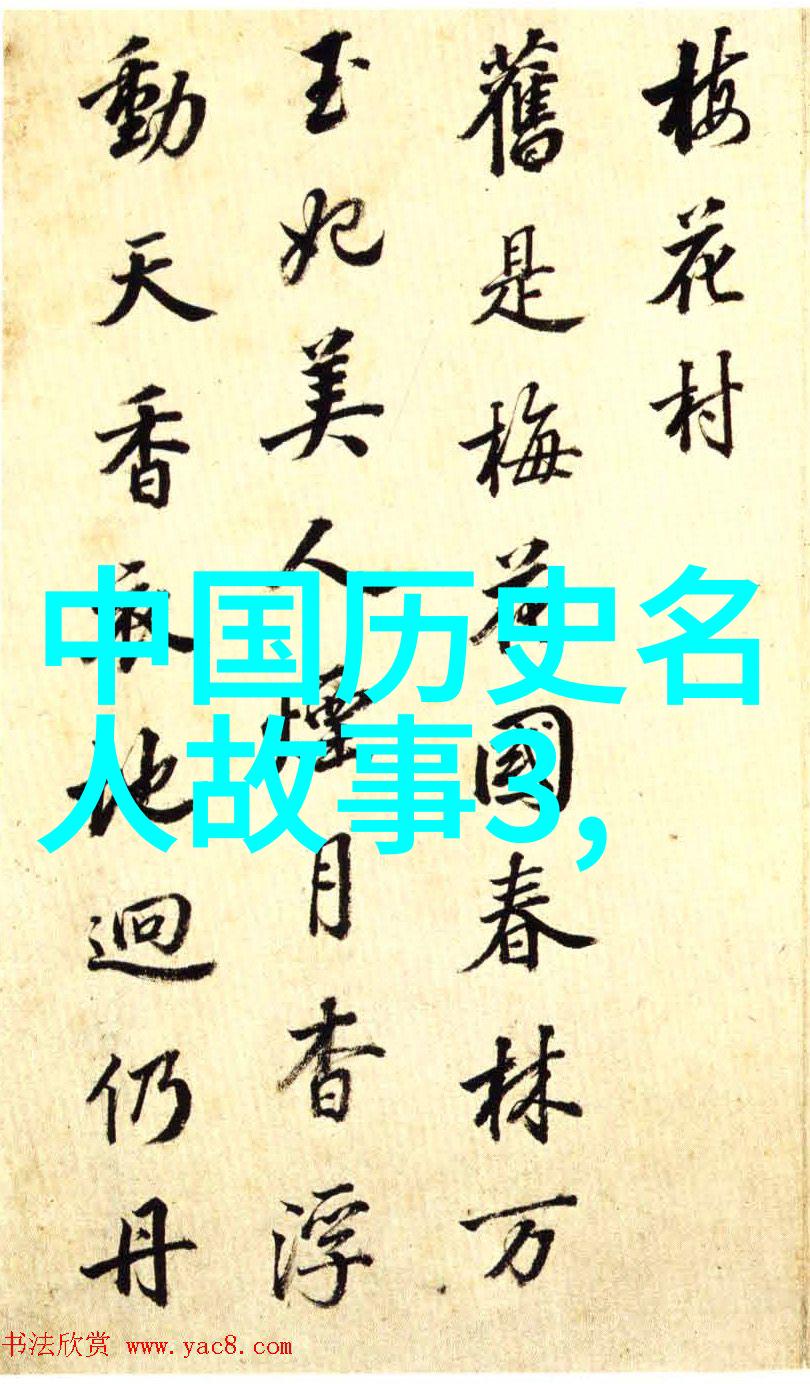 梅花村
舊是梅花國春林万
玉妃美人煙月杳浮
動天香地逈仍丹
中国历史名
人故事3,
书法欣赏 www.yac8.com